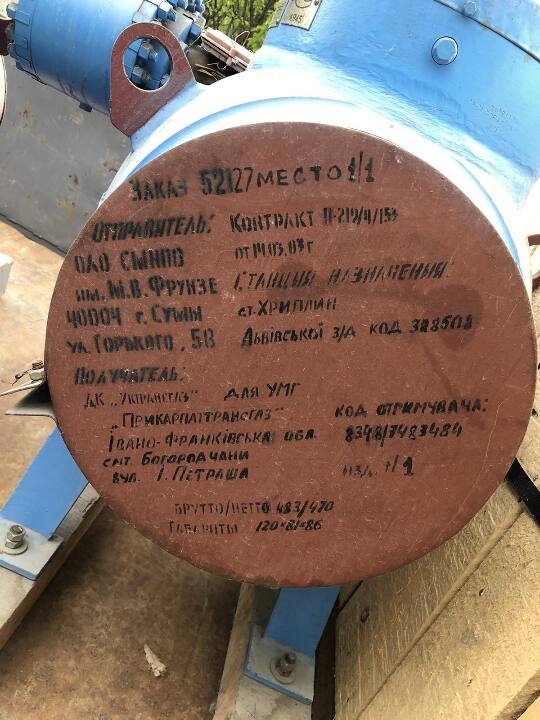 ЗАКАЗ 52127 МЕСТО 1/1
ОТПРАВИТЕЛЬ:
ОАО СМНПО
им. М.В. ФРУНЗЕ
40004 г. СУМЫ
ул. ГОРЬКОГО, 58
КОНТРАКТ П-219/4/153
от 14.03.03 г
СТАНЦИЯ НАЗНАЧЕНИЯ:
ст. ХРИПЛИН
ЛЬВІВСЬКОЇ З/Д КОД 328508
ПОЛУЧАТЕЛЬ:
ДК "УКРТРАНСГАЗ" ДЛЯ УМГ
"ПРИКАРПАТТРАНСГАЗ"
ІВАНО-ФРАНКІВСЬКА ОБЛ.
смт. БОГОРОДЧАНИ
вул. І. ПЕТРАША
КОД ОТРИМУВАЧА:
8348/7483484
БРУТТО/НЕТТО 483/470
ГАБАРИТЫ 120×81×86